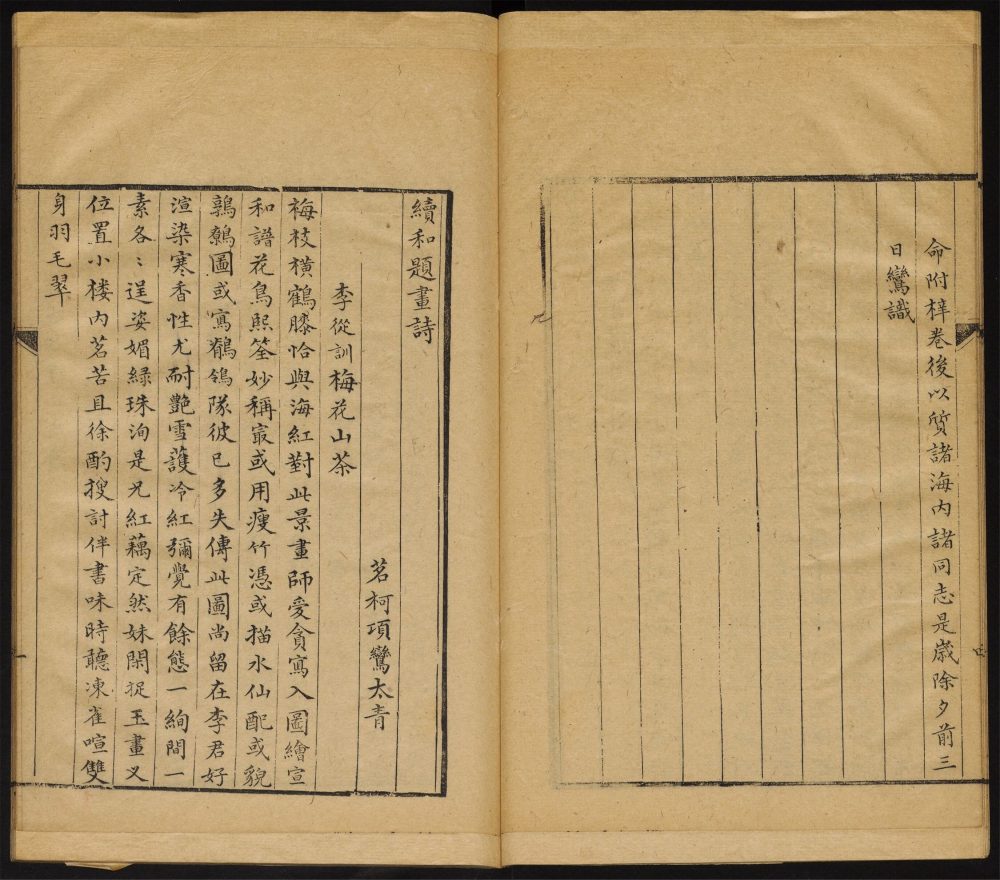 命附梓卷後以質諸海内諸同志是歲除夕前三
日鸞識
續和題畫詩
茗柯項鸞太青
李從訓梅花山茶
梅枝橫鶴膝恰與海紅對此景畫師愛貪寫入圖繪宣
和譜花鳥熙筌妙稱㝡或用瘦竹憑或描水仙配或貌
鶉鷯圖或寫鶺鴒隊彼已多失傳此圖尚留在李君好
渲染寒香性尤耐艷雪護冷紅彌覺有餘態一絢間一
素各〻逞姿媚綠珠洵是兄紅藕定然妹閑捉玉畫叉
位置小楼内茗苦且徐酌搜討伴書味時聽凍雀喧雙
身羽毛翠